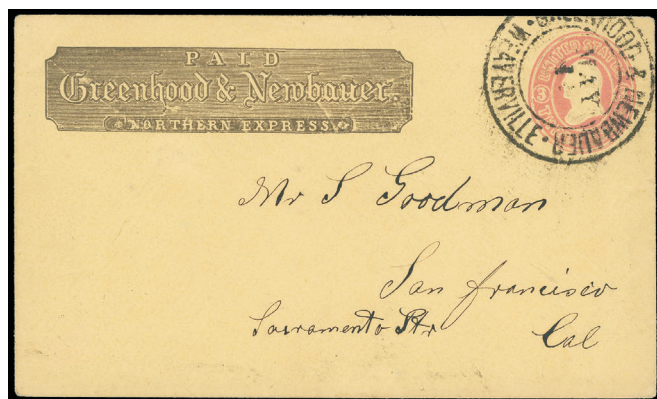 PAID
Greenhood & Newbauer.
NORTHERN EXPRESS
GREENHOOD & NEWBAUER · WEAVERVILLE ·
MAY
3
Mr S Goodman
San Francisco
Sacramento Str
Cal